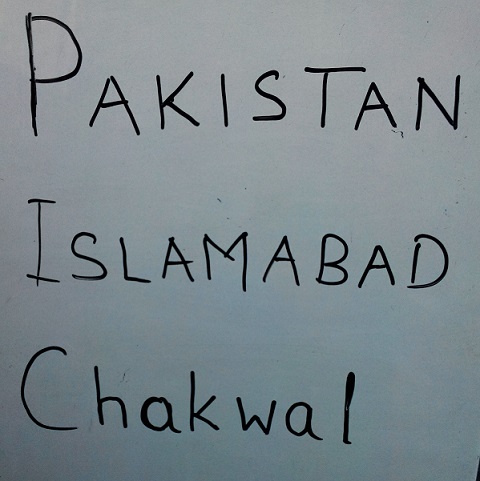 PAKISTAN
ISLAMABAD
Chakwal